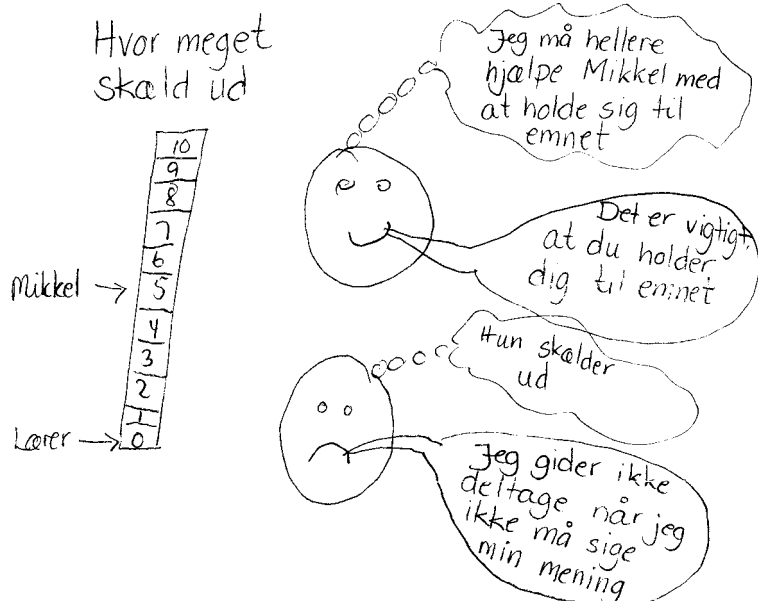 Hvor meget
skæld ud
10
9
8
7
6
5
4
3
2
1
0
Mikkel →
Lærer →
Jeg må hellere
hjælpe Mikkel med
at holde sig til
emnet
Det er vigtigt,
at du holder
dig til emnet
Hun skælder
ud
Jeg gider ikke
deltage når jeg
ikke må sige
min mening